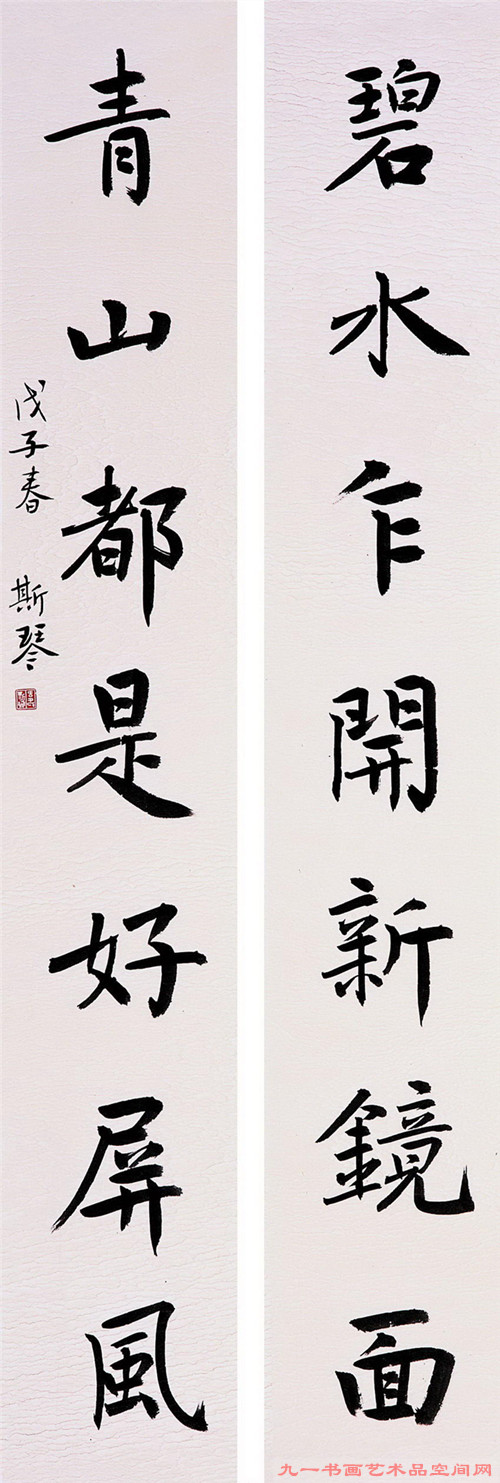 碧水乍開新鏡面
青山都是好屏風
戊子春 斯琴
九一书画艺术品空间网